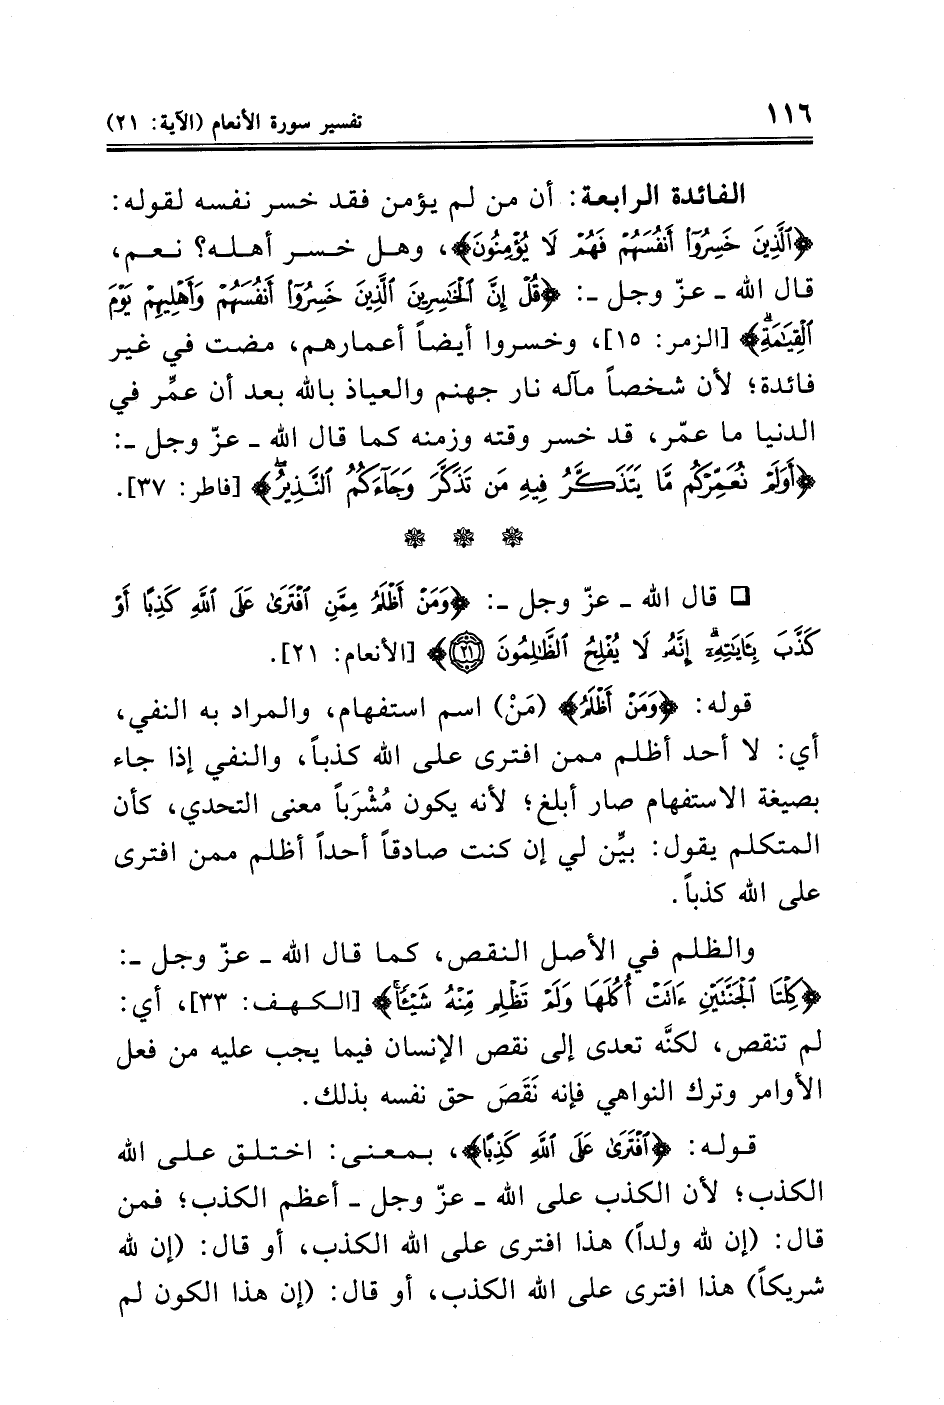 ١١٦
تفسير سورة الأنعام (الآية: ٢١)
الفائدة الرابعة: أن من لم يؤمن فقد خسر نفسه لقوله:
﴿ٱلَّذِينَ خَسِرُوٓا۟ أَنفُسَهُمْ فَهُمْ لَا يُؤْمِنُونَ﴾، وهل خسر أهله؟ نعم،
قال الله ـ عزّ وجل ـ: ﴿قُلْ إِنَّ ٱلْخَـٰسِرِينَ ٱلَّذِينَ خَسِرُوٓا۟ أَنفُسَهُمْ وَأَهْلِيهِمْ يَوْمَ
ٱلْقِيَـٰمَةِ ۗ﴾ [الزمر: ١٥]، وخسروا أيضاً أعمارهم، مضت في غير
فائدة؛ لأن شخصاً مآله نار جهنم والعياذ بالله بعد أن عمِّر في
الدنيا ما عمّر، قد خسر وقته وزمنه كما قال الله ـ عزّ وجل ـ:
﴿أَوَلَمْ نُعَمِّرْكُم مَّا يَتَذَكَّرُ فِيهِ مَن تَذَكَّرَ وَجَآءَكُمُ ٱلنَّذِيرُ ۖ﴾ [فاطر: ٣٧].
❋ ❋ ❋
❑ قال الله ـ عزّ وجل ـ: ﴿وَمَنْ أَظْلَمُ مِمَّنِ ٱفْتَرَىٰ عَلَى ٱللَّهِ كَذِبًا أَوْ
كَذَّبَ بِـَٔايَـٰتِهِۦٓ ۗ إِنَّهُۥ لَا يُفْلِحُ ٱلظَّـٰلِمُونَ ٢١﴾ [الأنعام: ٢١].
قوله: ﴿وَمَنْ أَظْلَمُ﴾ (مَنْ) اسم استفهام، والمراد به النفي،
أي: لا أحد أظلم ممن افترى على الله كذباً، والنفي إذا جاء
بصيغة الاستفهام صار أبلغ؛ لأنه يكون مُشْرَباً معنى التحدي، كأن
المتكلم يقول: بيِّن لي إن كنت صادقاً أحداً أظلم ممن افترى
على الله كذباً.
والظلم في الأصل النقص، كما قال الله ـ عزّ وجل ـ:
﴿كِلْتَا ٱلْجَنَّتَيْنِ ءَاتَتْ أُكُلَهَا وَلَمْ تَظْلِم مِّنْهُ شَيْـًٔا ۚ﴾ [الكهف: ٣٣]، أي:
لم تنقص، لكنَّه تعدى إلى نقص الإنسان فيما يجب عليه من فعل
الأوامر وترك النواهي فإنه نَقَصَ حق نفسه بذلك.
قوله: ﴿ٱفْتَرَىٰ عَلَى ٱللَّهِ كَذِبًا﴾، بمعنى: اختلق على الله
الكذب؛ لأن الكذب على الله ـ عزّ وجل ـ أعظم الكذب؛ فمن
قال: (إن لله ولداً) هذا افترى على الله الكذب، أو قال: (إن لله
شريكاً) هذا افترى على الله الكذب، أو قال: (إن هذا الكون لم